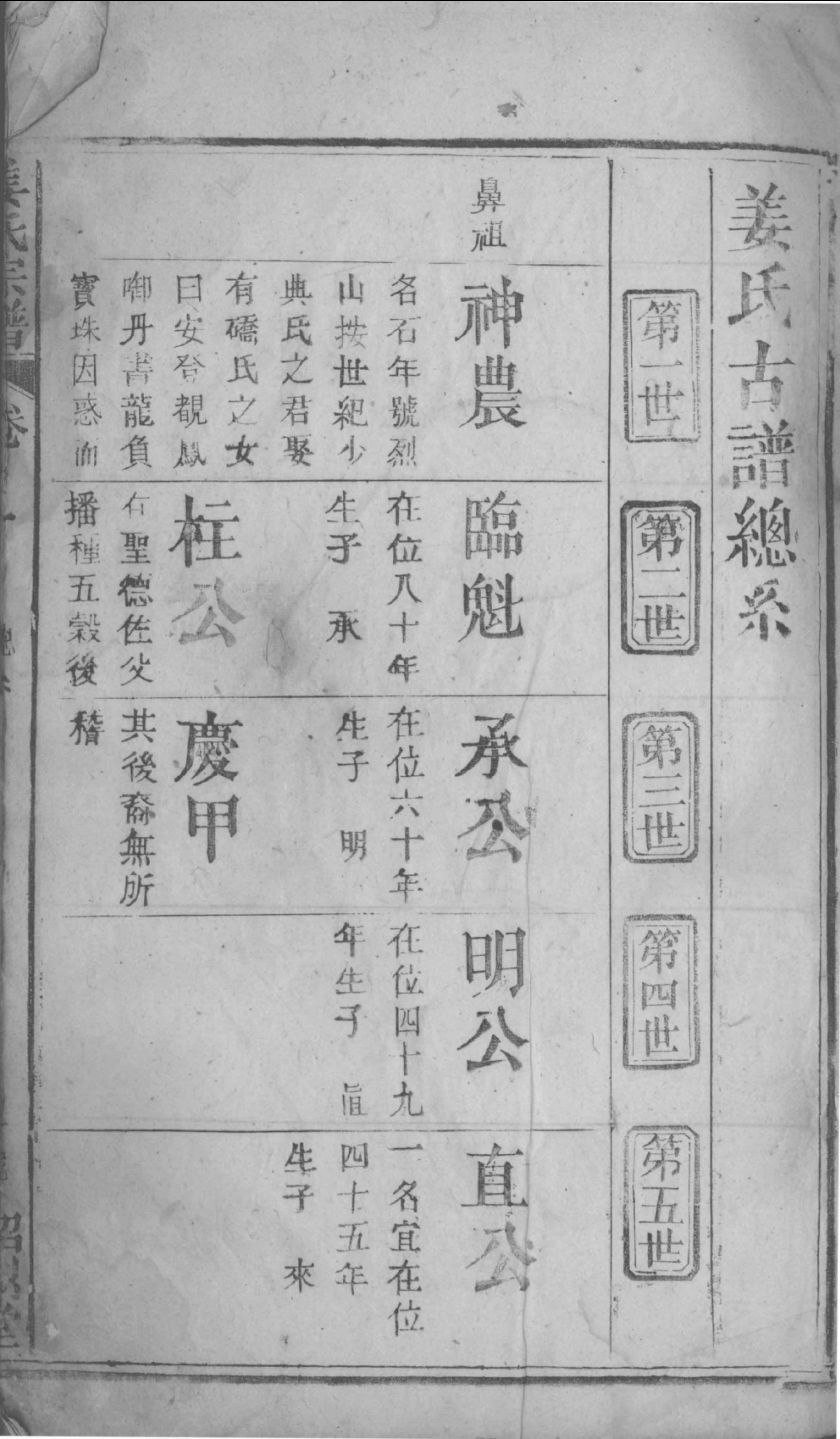 姜氏古譜總系
第一世
第二世
第三世
第四世
第五世
鼻祖
神農
名石年號烈
山按世紀少
典氏之君娶
有礄氏之女
曰安登覩鳳
啣丹書龍負
寶珠因惑而
臨魁
在位八十年
生子 承
柱公
有聖德佐父
播種五穀後
承公
在位六十年
生子 明
慶甲
其後裔無所
稽
明公
在位四十九
年生子 直
直公
一名宜在位
四十五年
生子 來
姜氏宗譜
卷